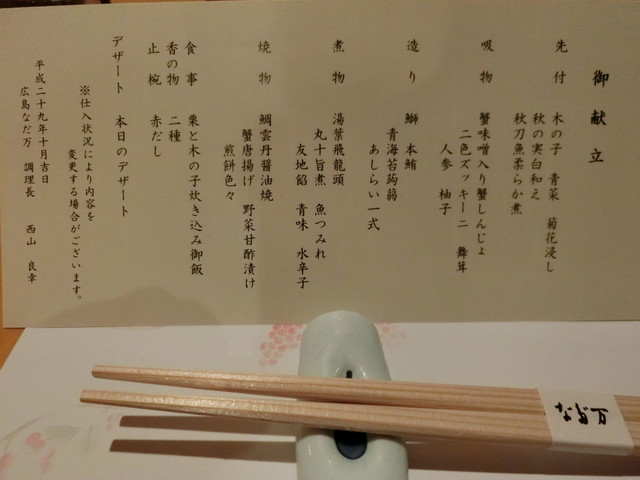 御献立
先付 木の子 青菜 菊花浸し
秋の実白和え
秋刀魚柔らか煮
吸物 蟹味噌入り蟹しんじょ
二色ズッキーニ 舞茸
人参 柚子
造り 鰤 本鮪
青海苔蒟蒻
あしらい一式
煮物 湯葉飛龍頭
丸十旨煮 魚つみれ
友地餡 青味 水辛子
焼物 鯛雲丹醤油焼
蟹唐揚げ 野菜甘酢漬け
煎餅色々
食事 栗と木の子炊き込み御飯
香の物 二種
止椀 赤だし
デザート 本日のデザート
※仕入状況により内容を
変更する場合がございます。
平成二十九年十月吉日
広島なだ万 調理長 西山 良幸
なだ万